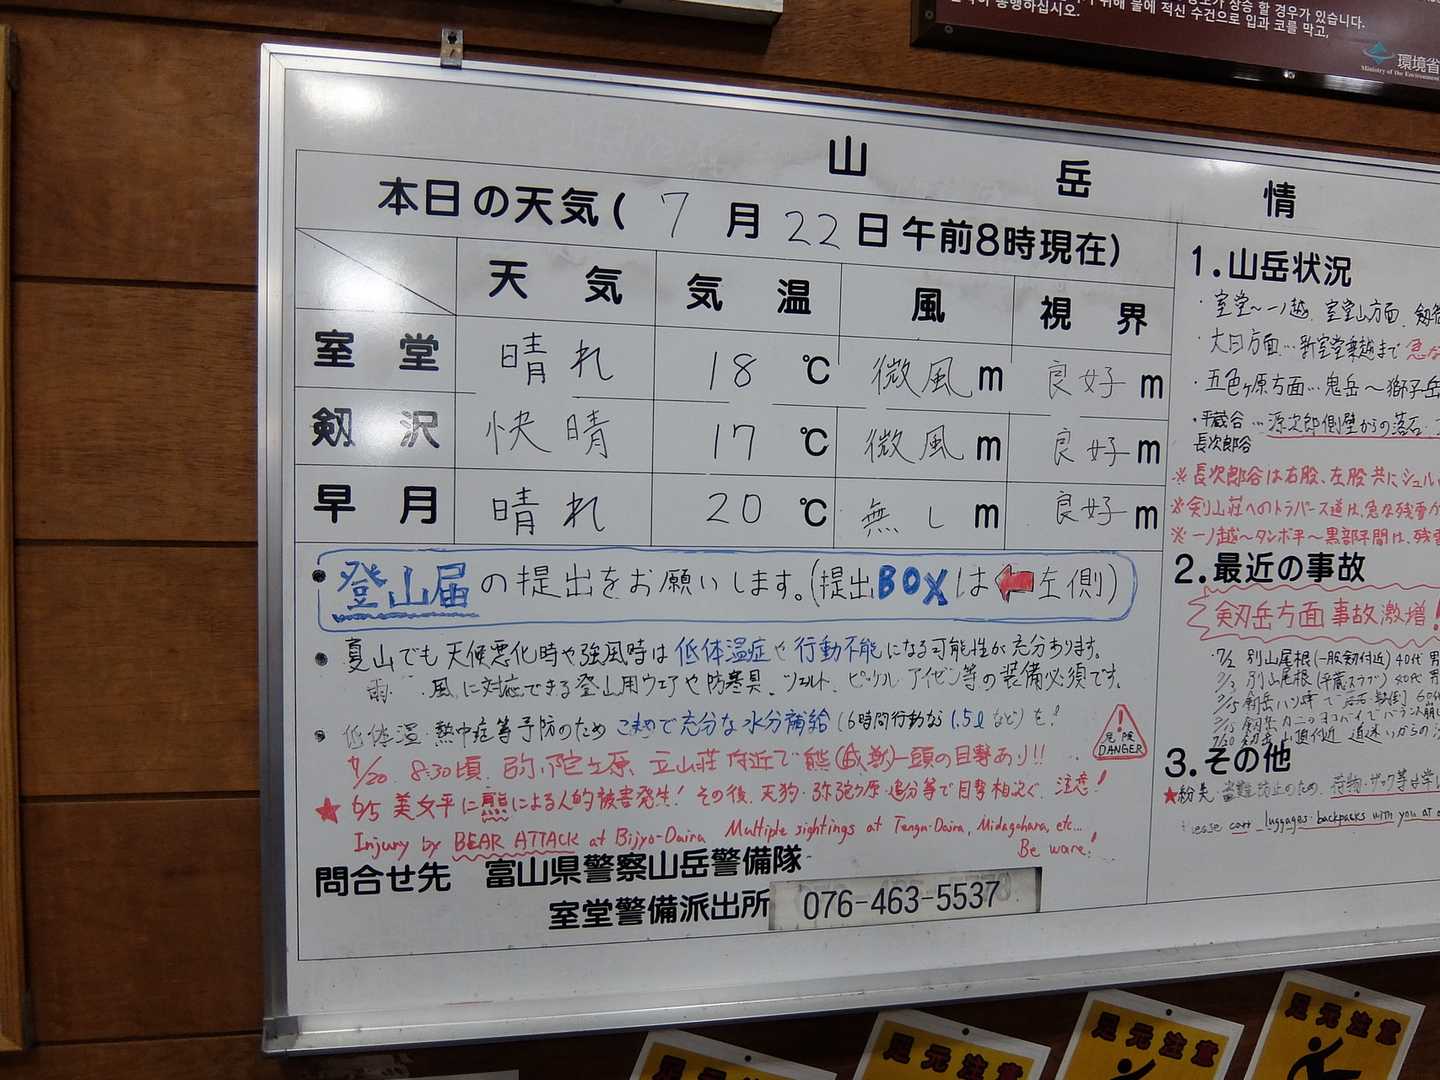 경우가 있습니다.
위해 물에 적신 수건으로 입과 코를 막고,
통행하십시오.
環境省
Ministry of the Environment
山岳情
本日の天気(7月22日午前8時現在)
天気 気温 風 視界
室堂 晴れ 18℃ 微風m 良好m
剱沢 快晴 17℃ 微風m 良好m
早月 晴れ 20℃ 無しm 良好m
・登山届の提出をお願いします。(提出BOXは←左側)
・夏山でも天候悪化時や強風時は低体温症や行動不能になる可能性が充分あります。
雨・風に対応できる登山用ウェアや防寒具、ツェルト、ピッケル、アイゼン等の装備必須です。
・低体温・熱中症等予防のためこまめで充分な水分補給(6時間行動なら1.5ℓなど)を!
危険
DANGER
7/20 8:30頃、弥陀ヶ原、立山荘付近で熊(成獣)一頭の目撃あり!!
★6/5 美女平に熊による人的被害発生!その後、天狗・弥陀ヶ原・追分等で目撃相次ぐ、注意!
Injury by BEAR ATTACK at Bijyo-Daira Multiple sightings at Tengu-Daira, Midagahara, etc...
Be ware!
問合せ先 富山県警察山岳警備隊
室堂警備派出所 076-463-5537
1.山岳状況
・室堂~一ノ越、室堂山方面、剱
・大日方面…新室堂乗越まで急な
・五色ヶ原方面…鬼岳~獅子岳
・平蔵谷
長次郎谷 …源次郎側壁からの落石
※長次郎谷は右股、左股共にシュル
※剣山荘へのトラバース道は、急な残雪が
※一ノ越~タンボ平~黒部平間は、残雪
2.最近の事故
剱岳方面 事故激増!
・7/2 別山尾根(一服剱付近)40代男
7/3 別山尾根(平蔵スラブ)40代男
3.その他
★紛失・盗難防止のため、荷物・ザック等は
Please carry luggages・backpacks with you at
足元注意
足元注意
足元注意
足元注意